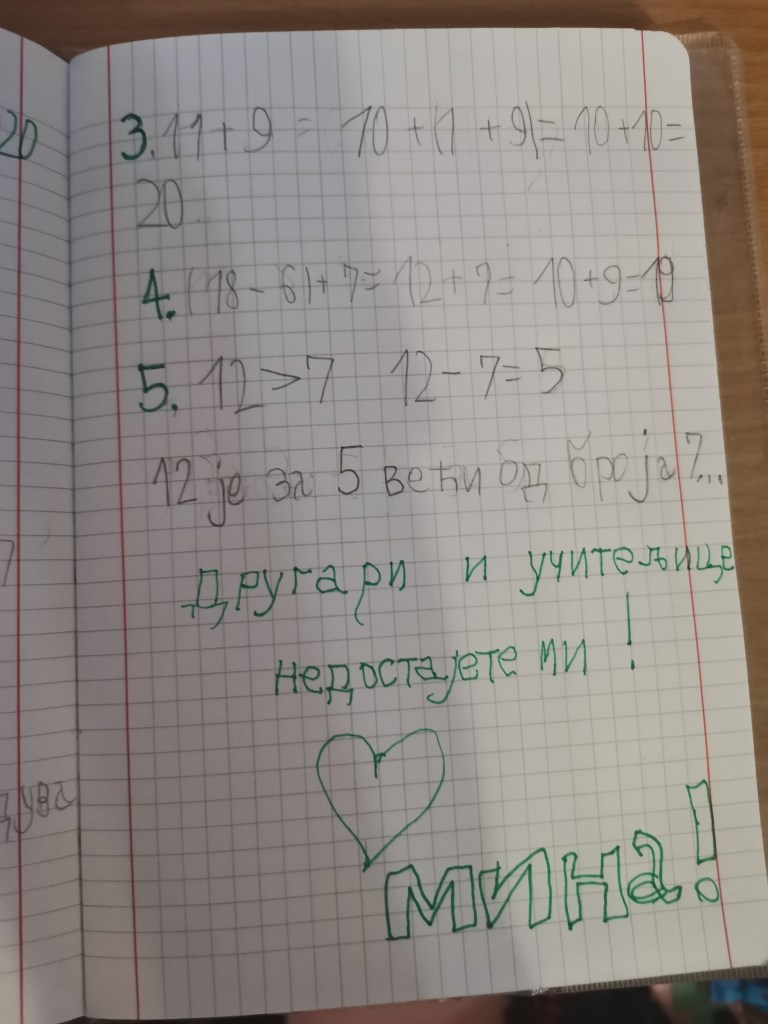 20
3. 11 + 9 = 10 + (1 + 9) = 10 + 10 =
20
4. (18 - 6) + 7 = 12 + 7 = 10 + 9 = 19
5. 12 > 7 12 - 7 = 5
12 је за 5 већи од броја 7...
7
другари и учитељице
недостајете ми !
мина!